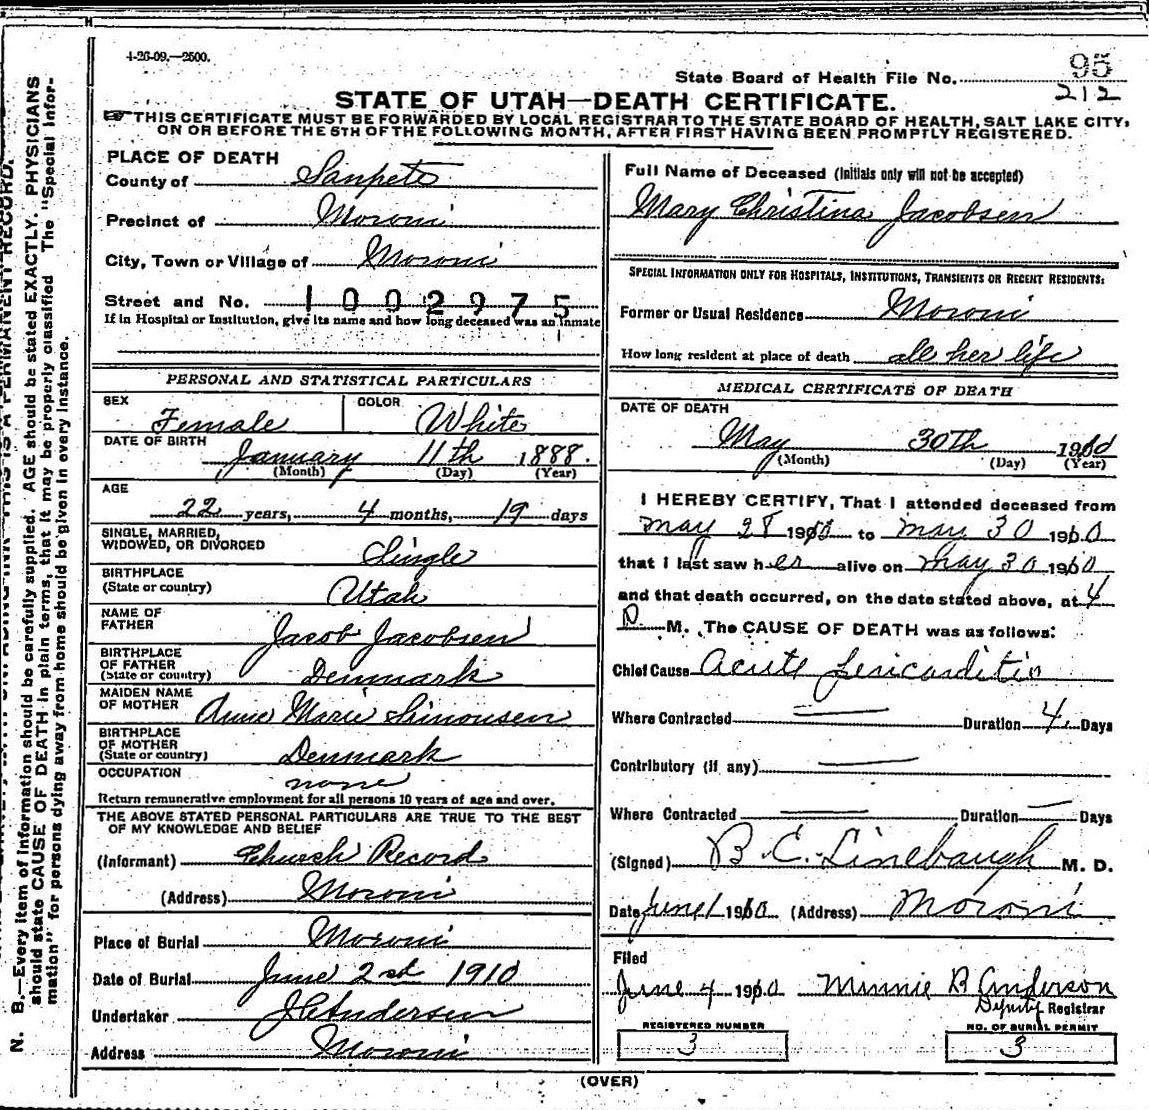 4-26-09.—2500.
State Board of Health File No. 95
212
STATE OF UTAH—DEATH CERTIFICATE.
☞ THIS CERTIFICATE MUST BE FORWARDED BY LOCAL REGISTRAR TO THE STATE BOARD OF HEALTH, SALT LAKE CITY,
ON OR BEFORE THE 5TH OF THE FOLLOWING MONTH, AFTER FIRST HAVING BEEN PROMPTLY REGISTERED.
PLACE OF DEATH
County of Sanpete
Precinct of Moroni
City, Town or Village of Moroni
Street and No. 1002975
If in Hospital or Institution, give its name and how long deceased was an inmate
PERSONAL AND STATISTICAL PARTICULARS
SEX Female COLOR White
DATE OF BIRTH January 11th 1888.
(Month) (Day) (Year)
AGE
22 years, 4 months, 19 days
SINGLE, MARRIED,
WIDOWED, OR DIVORCED Single
BIRTHPLACE
(State or country) Utah
NAME OF
FATHER Jacob Jacobsen
BIRTHPLACE
OF FATHER
(State or country) Denmark
MAIDEN NAME
OF MOTHER Anne Marie Simonsen
BIRTHPLACE
OF MOTHER
(State or country) Denmark
OCCUPATION none
Return remunerative employment for all persons 10 years of age and over.
THE ABOVE STATED PERSONAL PARTICULARS ARE TRUE TO THE BEST
OF MY KNOWLEDGE AND BELIEF
(Informant) Church Record
(Address) Moroni
Place of Burial Moroni
Date of Burial June 2nd 1910
Undertaker J C Andersen
Address Moroni
Full Name of Deceased (Initials only will not be accepted)
Mary Christina Jacobsen
SPECIAL INFORMATION ONLY FOR HOSPITALS, INSTITUTIONS, TRANSIENTS OR RECENT RESIDENTS:
Former or Usual Residence Moroni
How long resident at place of death all her life
MEDICAL CERTIFICATE OF DEATH
DATE OF DEATH
May 30th 1910
(Month) (Day) (Year)
I HEREBY CERTIFY, That I attended deceased from
May 28 1910 to May 30 1910
that I last saw her alive on May 30 1910
and that death occurred, on the date stated above, at 4
P. M. The CAUSE OF DEATH was as follows:
Chief Cause Acute Pericarditis
Where Contracted Duration 4 Days
Contributory (if any)
Where Contracted Duration Days
(Signed) B. C. Linebaugh M. D.
Date June 1 1910 (Address) Moroni
Filed
June 4 1910 Minnie B Anderson
Deputy Registrar
REGISTERED NUMBER
3
NO. OF BURIAL PERMIT
3
(OVER)
N. B.—Every item of information should be carefully supplied. AGE should be stated EXACTLY. PHYSICIANS
should state CAUSE OF DEATH in plain terms, that it may be properly classified. The "Special Infor-
mation" for persons dying away from home should be given in every instance.